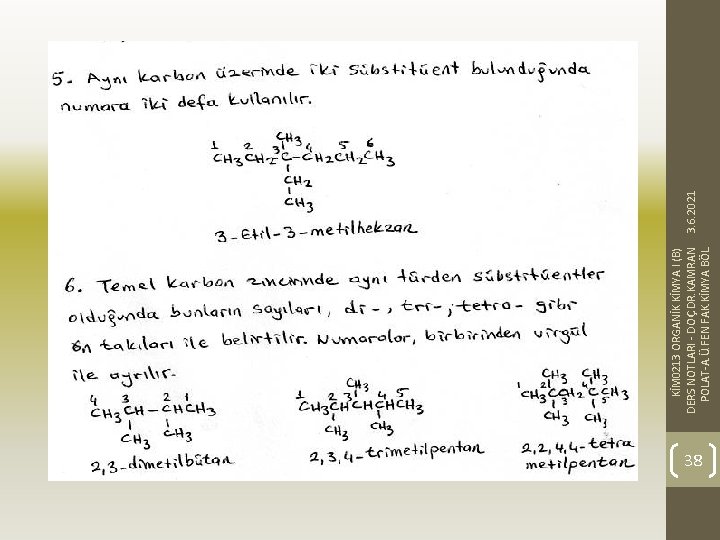 5. Aynı karbon üzerinde iki sübstitüent bulunduğunda
numara iki defa kullanılır.
CH3
1 2 3 4 5 6
CH3CH2C-CH2CH2CH3
CH2
CH3
3-Etil-3-metilhekzan
6. Temel karbon zincirinde aynı türden sübstitüentler
olduğunda bunların sayıları, di-, tri-, tetra- gibi
ön takıları ile belirtilir. Numaralar, birbirinden virgül
ile ayrılır.
4 3 2 1
CH3CH-CHCH3
CH3 CH3
2,3-dimetilbütan
CH3
1 2 3 4 5
CH3CHCHCHCH3
CH3 CH3
2,3,4-trimetilpentan
CH3 CH3
1 2 4
CH3CCH2CCH3
3 5
CH3 CH3
2,2,4,4-tetra
metilpentan
KİM0213 ORGANİK KİMYA I (B)
DERS NOTLARI - DOÇ.DR.KAMRAN
POLAT-A.Ü.FEN FAK.KİMYA BÖL
3.6.2021
38